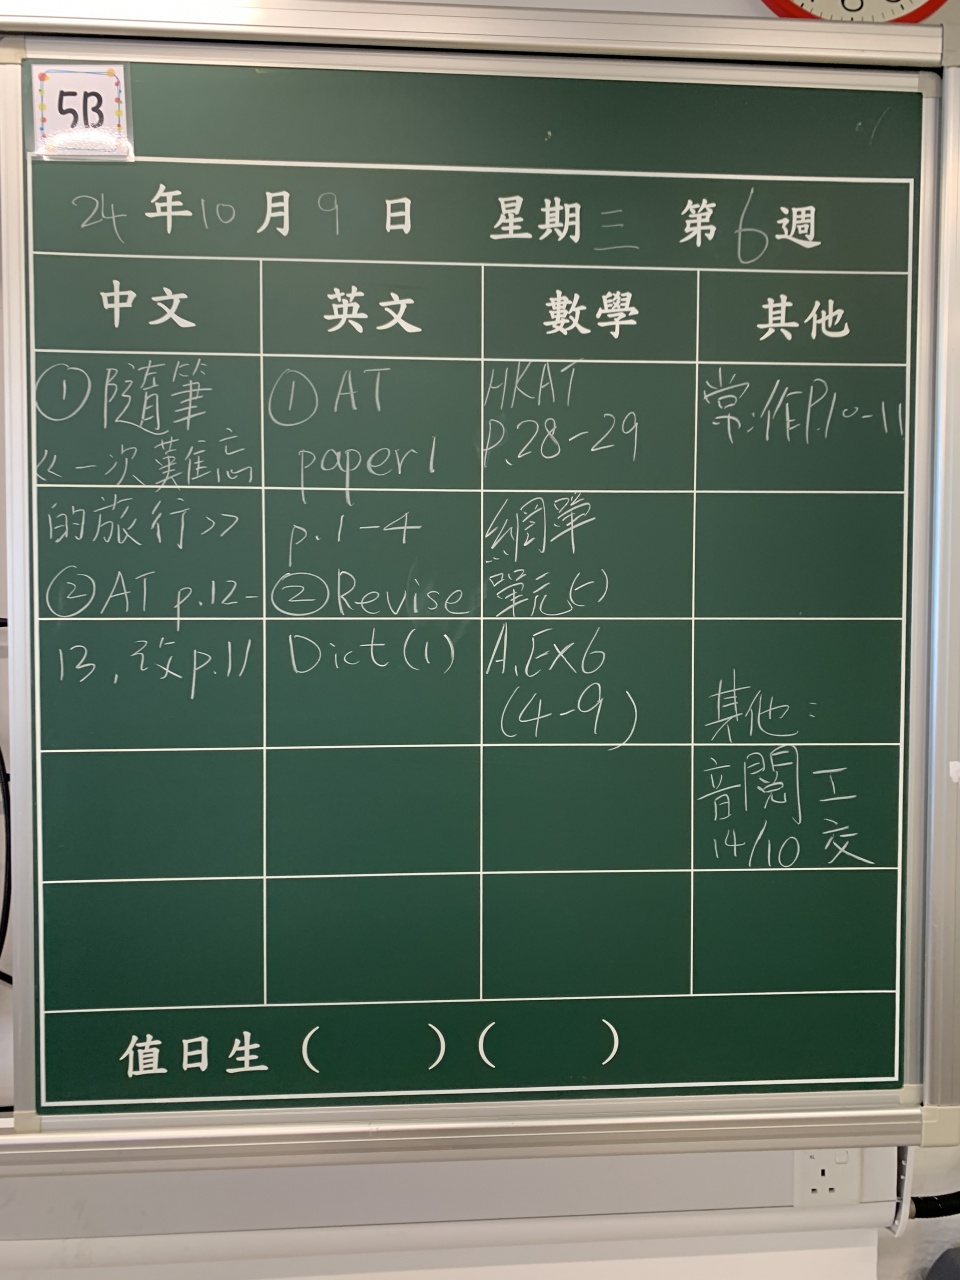 5B
24年10月9日 星期三 第6週
中文 英文 數學 其他
①隨筆
《一次難忘
的旅行》
②AT p.12-
13, 改p.11
①AT
paper 1
p.1-4
②Revise
Dict (1)
HKAT
P.28-29
網單
單元(一)
A.Ex6
(4-9)
常:作P.10-11
其他:
音閱工
14/10 交
值日生 ( ) ( )